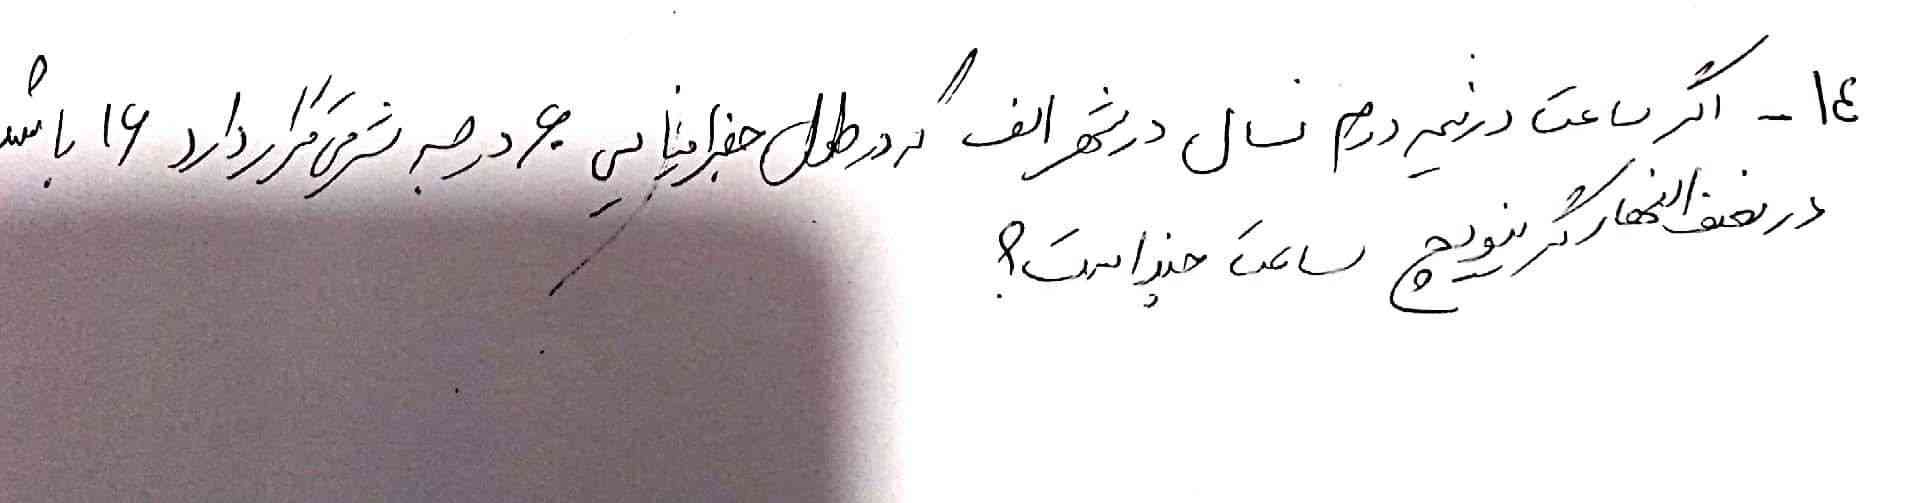 ۱۴ - اگر ساعت در نیمه دوم سال در شهر الف که در طول جغرافیایی ۶۰ درجه شرقی قرار دارد ۱۶ باشد
در نصف النهار گرینویچ ساعت چند است؟